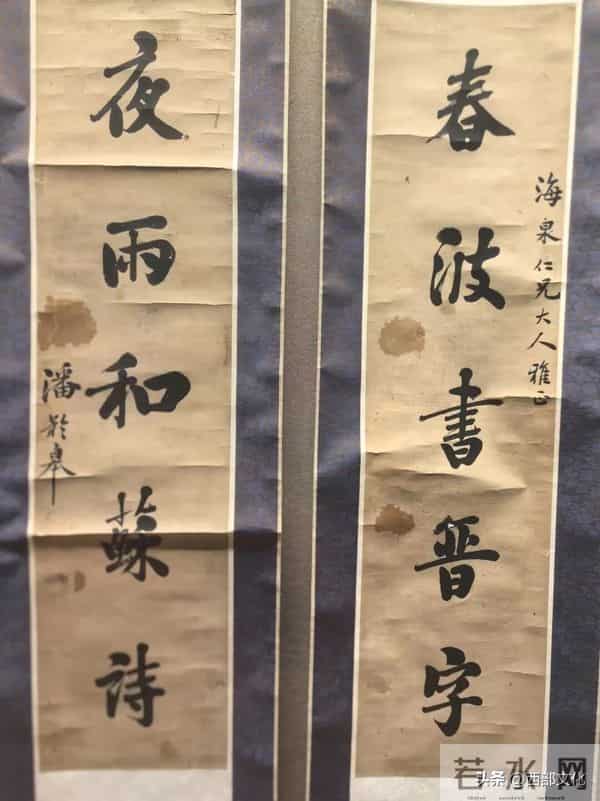 春波書晉字
海泉仁兄大人雅正
夜雨和蘇詩
潘齡皋
若水网
头条 @西部文化